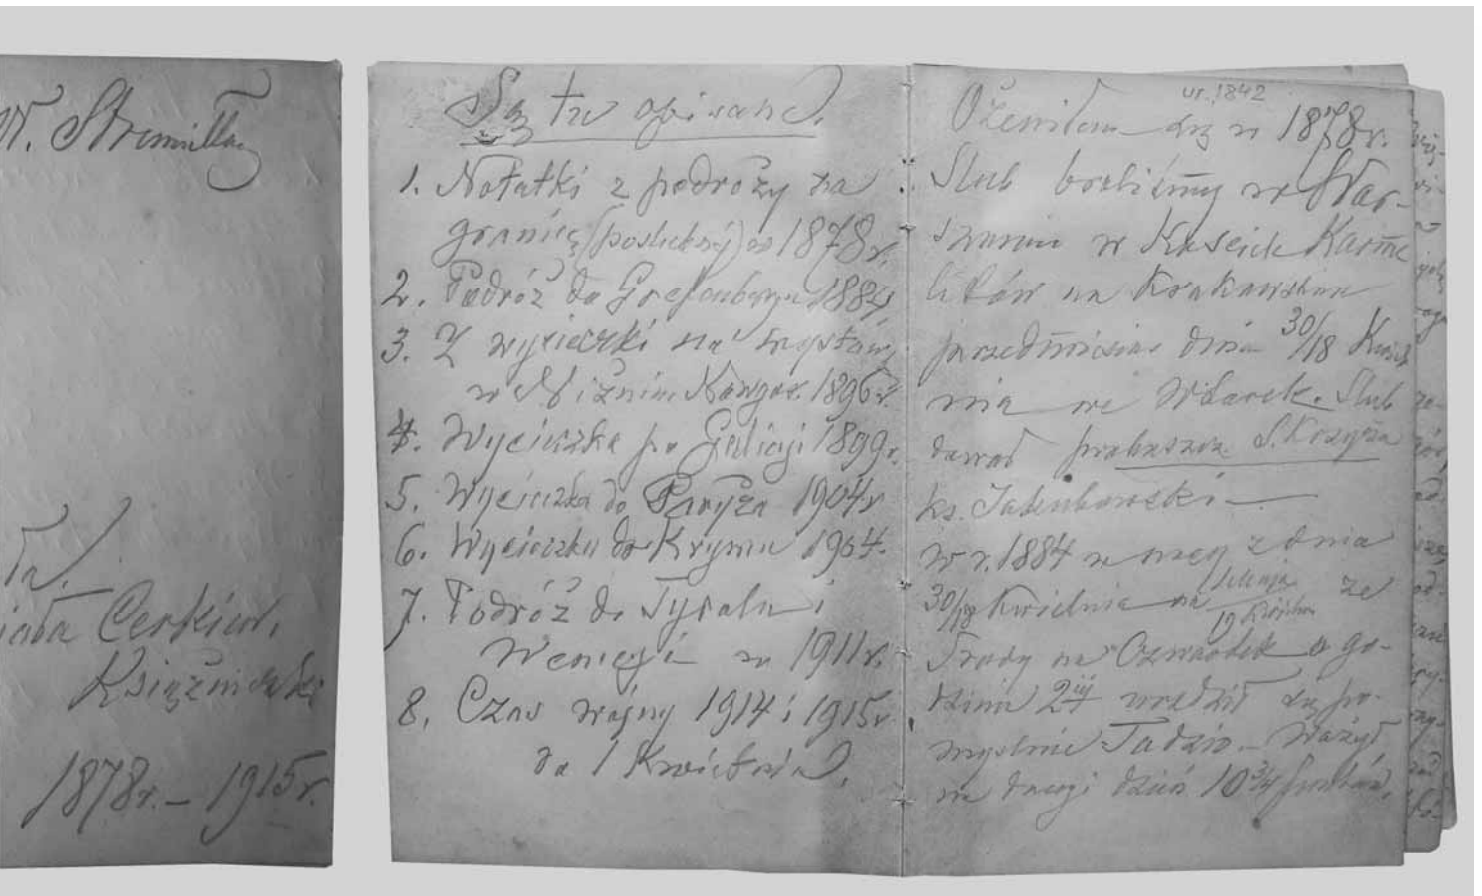 W. Stremiłła
Cerkiew.
Księźniczki
1878r. – 1915r.
Są tu opisane.
1. Notatki z podróży za
granicę (poślubnéj) w 1878r.
2. Podróż do Grefenbergu 1884
3. Z wycieczki na wystawę
w Niżnim Nowgor. 1896r.
4. Wycieczka po Galicyi 1899r.
5. Wycieczka do Paryża 1904r
6. Wycieczka do Krymu 1904.
7. Podróż do Tyrolu i
Wenecyi w 1911r.
8. Czas wojny 1914 i 1915r.
do 1 Kwietnia.
ur. 1842
Ożeniłem się w 1878r.
Ślub braliśmy w War-
szawie w Kościele Karme
litów na Krakowskim
przedmieściu dnia 30/18 Kwiet
nia we Wtorek. Ślub
dawał proboszcz Ś. Krzyża
ks. Jakubowski –
W r. 1884 w nocy z dnia
30/18 Kwietnia na 1 Maja ze
19 Kwietnia
Środy na Czwartek o go-
dzinie 2éj urodził się po-
myślnie Tadzio – Ważył
na drugi dzień 10 3/4 funtów.